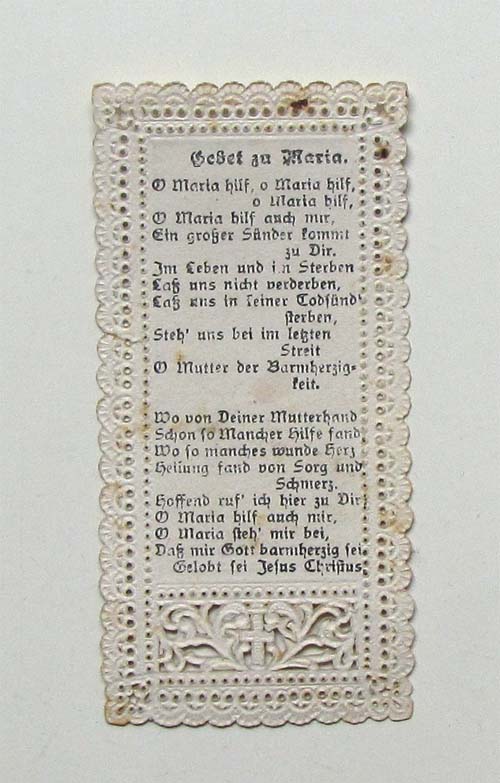 Gebet zu Maria.
O Maria hilf, o Maria hilf,
o Maria hilf,
O Maria hilf auch mir,
Ein großer Sünder kommt
zu Dir.
Im Leben und im Sterben
Laß uns nicht verderben,
Laß uns in keiner Todsünd'
sterben,
Steh' uns bei im letzten
Streit
O Mutter der Barmherzig-
keit.
Wo von Deiner Mutterhand
Schon so Mancher Hilfe fand
Wo so manches wunde Herz
Heilung fand von Sorg und
Schmerz.
Hoffend ruf' ich hier zu Dir:
O Maria hilf auch mir,
O Maria steh' mir bei,
Daß mir Gott barmherzig sei.
Gelobt sei Jesus Christus.